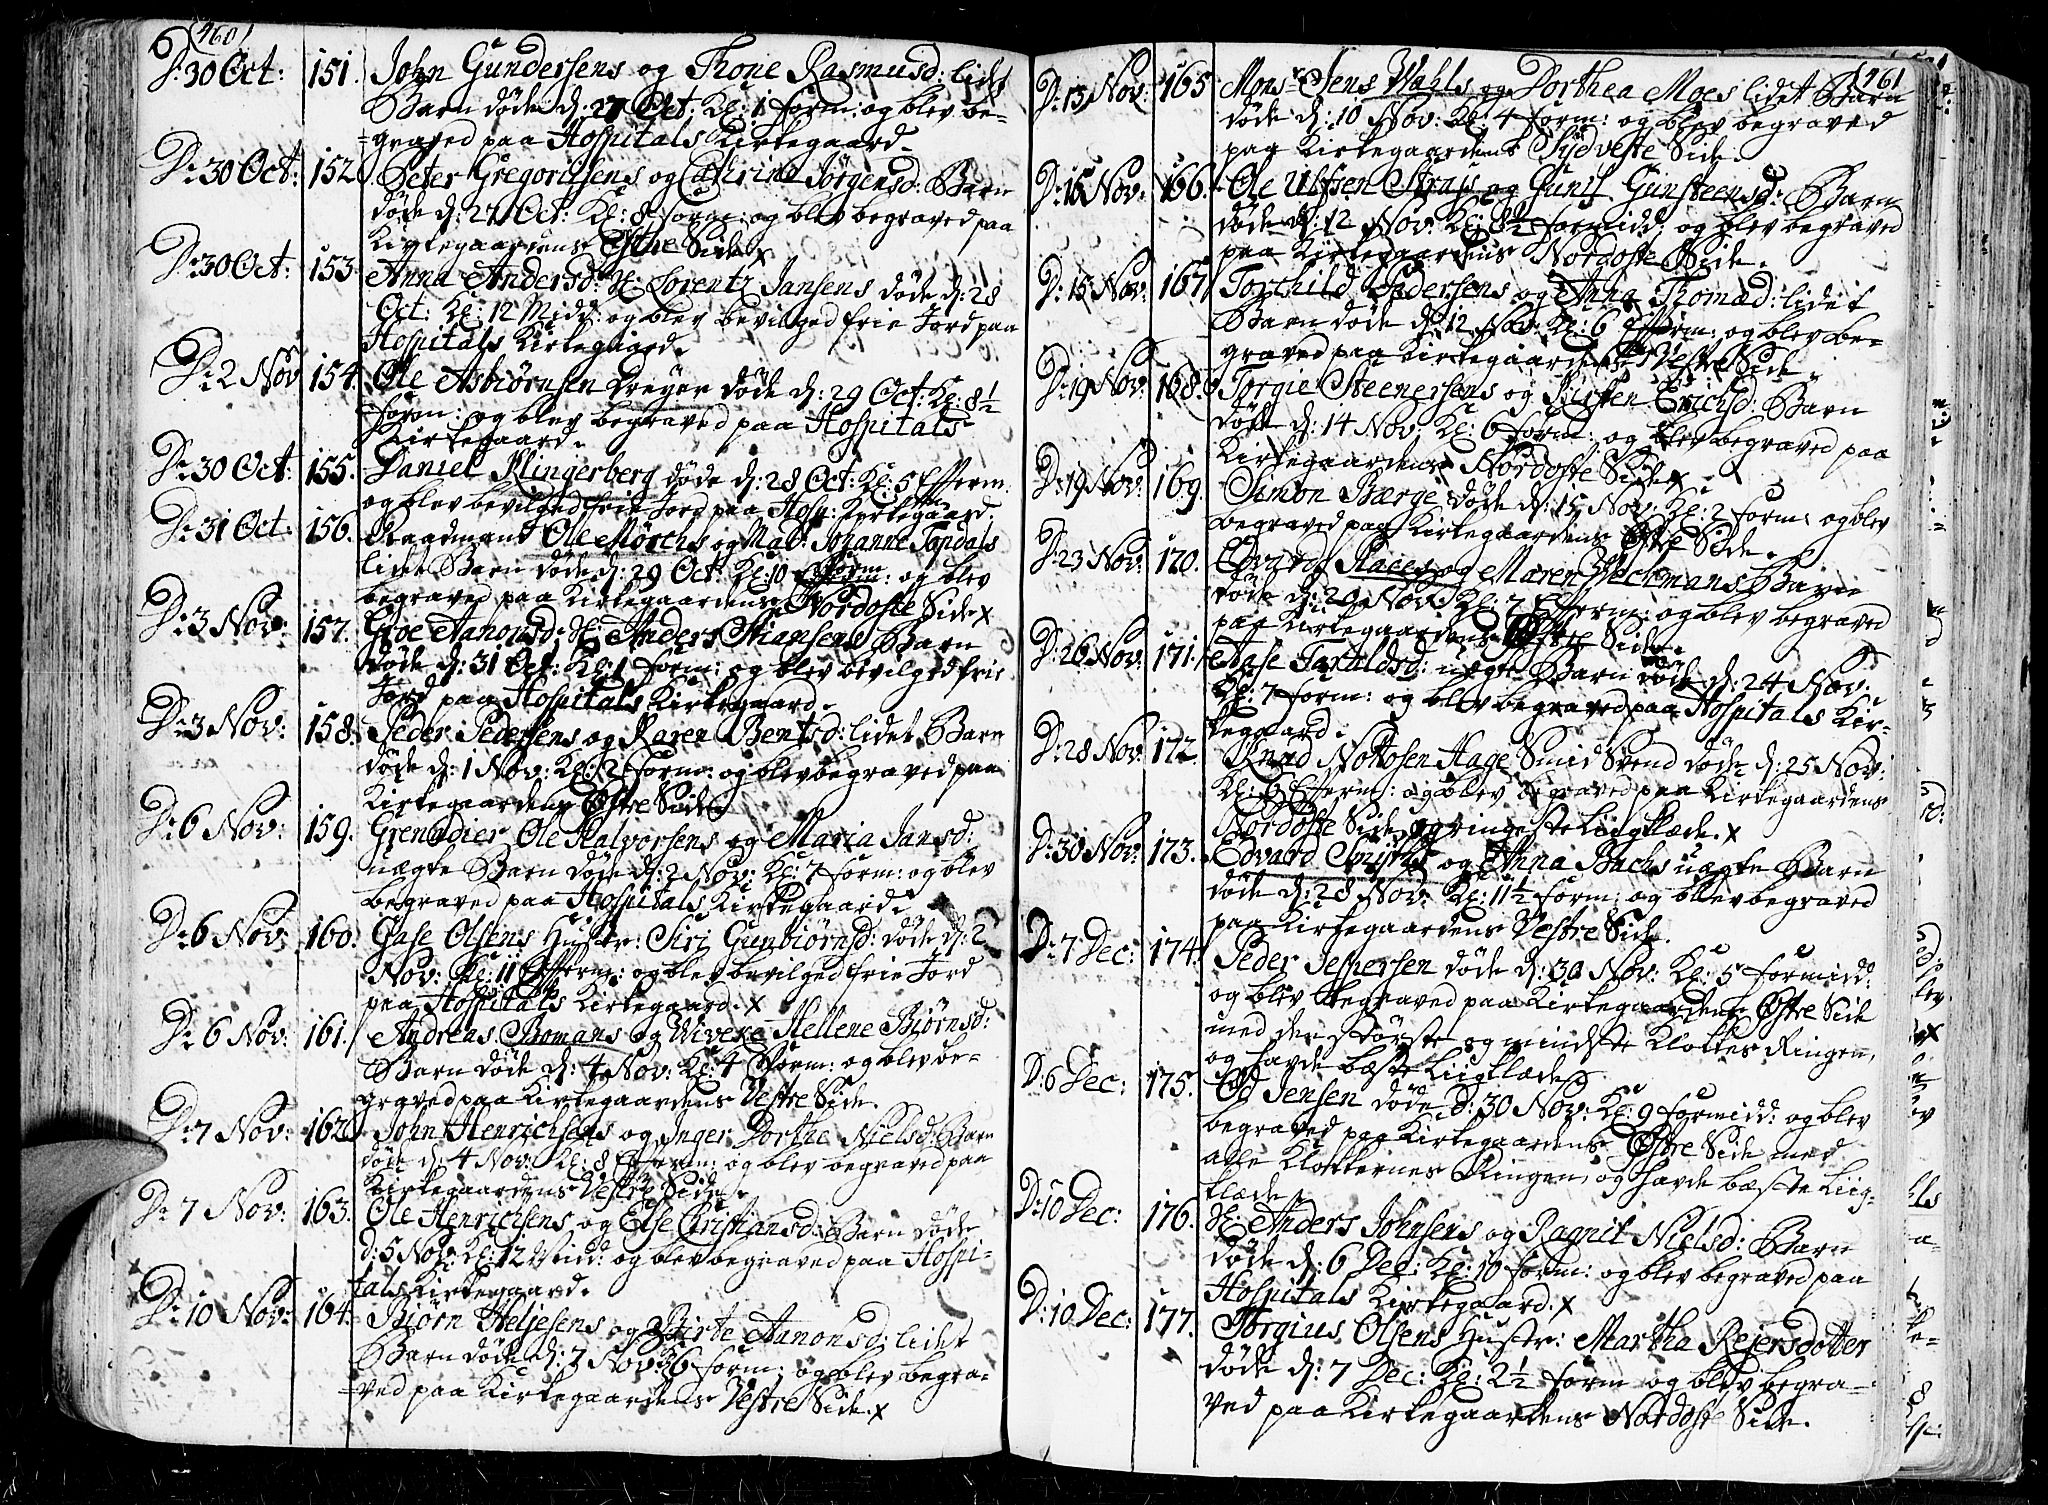 (460)
D: 30 Oct: 151. John Gundersens og Thone Rasmusd: lidet
Barn døde d: 27 Oct: Kl: 1 form: og blev be-
graved paa Hospitals Kirkegaard.
D: 30 Oct: 152. Peter Gregoriusens og Cathrina Jørgensd: Barn
døde d: 27 Oct: Kl: 8 form: og blev begraved paa
Kirkegaardens Østre Side x
D: 30 Oct: 153. Anna Andersd: Lorentz Jansens døde d: 28
Oct: Kl: 12 Midd: og blev bevilged frie Jord paa
Hospitals Kirkegaard.
D: 2 Nov 154. Ole Asbiørnsen Dreyer døde d: 29 Oct: Kl: 8½
form: og blev begraved paa Hospitals
Kirkegaard.
D: 30 Oct: 155. Daniel Klingerberg døde d: 28 Oct: Kl: 5 Efterm:
og blev bevilged frie Jord paa Hosp: Kirkegaard.
D: 31 Oct: 156. Raadmand Ole Mørchs og Mad: Johanne Topdals
lidet Barn døde d: 29 Oct: Kl: 10 form: og blev
begraved paa Kirkegaardens Nordoste Side x
D: 3 Nov: 157. Groe Aanonsd: Anders Stiansens Barn
døde d: 31 Oct: Kl: 1 form: og blev bevilged frie
Jord paa Hospitals Kirkegaard.
D: 3 Nov: 158. Peder Pedersens og Karen Bentsd: lidet Barn
døde d: 1 Nov: Kl: 12 form: og blev begraved paa
Kirkegaardens Østre Side
D: 6 Nov: 159. Grenadier Ole Halvorsens og Maria Jansd:
uægte Barn døde d: 2 Nov: Kl: 7 form: og blev
begraved paa Hospitals Kirkegaard.
D: 6 Nov: 160. Gase Olsens Hustr: Siri Gunbiørnsd: døde d: 2
Nov: Kl: 11 Efterm: og blev bevilged frie Jord
paa Hospitals Kirkegaard. x
D: 6 Nov: 161. Andreas Bomans og Wiveke Hellene Biørnsd:
Barn døde d: 4 Nov: Kl: 4 form: og blev be-
graved paa Kirkegaardens Vestre Side.
D: 7 Nov: 162. John Henrichsens og Inger Dorthe Nielsd: Barn
døde d: 4 Nov: Kl: 8 Efterm: og blev begraved paa
Kirkegaardens Vestre Side.
D: 7 Nov: 163. Ole Henrichsens og Else Christiansd: Barn døde
d: 5 Nov: Kl: 12 Midd: og blev begraved paa Hospi-
tals Kirkegaard.
D: 10 Nov: 164. Biørn Heljesens og Birte Aanonsd: lidet
Barn døde d: 7 Nov: 6 form: og blev begra-
ved paa Kirkegaardens Vestre Side. x
(461
D: 13 Nov: 165 Monsr Jens Wahls og Dorthea Moes lidet Barn
døde d: 10 Nov: Kl: 4 form: og blev begraved
paa Kirkegaardens Sydveste Side.
D: 15 Nov: 166. Ole Ulfsen Strass og Gunil Gunsteensd: Barn
døde d: 12 Nov: Kl: 8½ formidd: og blev begraved
paa Kirkegaardens Nordoste Side.
D: 15 Nov: 167. Torchild Pedersens og Anna Thomæd: lidet
Barn døde d: 12 Nov: Kl: 6 Efterm: og blev be-
graved paa Kirkegaardens Vestre Side.
D: 19 Nov: 168. Torgie Steenersens og Kirsten Erichsd: Barn
døde d: 14 Nov: Kl: 6 form: og blev begraved paa
Kirkegaardens Nordoste Side x
D: 19 Nov: 169. Simon Bærge døde d: 15 Nov: Kl: 2 form: og blev
begraved paa Kirkegaardens Østre Side.
D: 23 Nov: 170. Edvard Races og Maren Beckmans Barn
døde d: 20 Nov: Kl: 7 Efterm: og blev begraved
paa Kirkegaardens Østre Side.
D: 26 Nov: 171. Aase Tarialdsd: uægte Barn døde d: 24 Nov:
Kl: 7 form: og blev begraved paa Hospitals Kir-
kegaard.
D: 28 Nov: 172. Knud Nottosen Hage Smid Svend døde d: 25 Nov:
Kl: 6 Efterm: og blev begraved paa Kirkegaardens
Nordoste Side og ringeste Liigklæde. x
D: 30 Nov: 173. Edvard Smiths og Anna Buchs uægte Barn
døde d: 28 Nov: Kl: 11½ form: og blev begraved
paa Kirkegaardens Vestre Side.
D: 7 Dec: 174. Peder Jespersen døde d: 30 Nov: Kl: 5 formidd:
og blev begraved paa Kirkegaardens Østre Side
med den største og mindste Klokkes Ringen,
og havde bæste Liigklæde
D: 6 Dec: 175. Od Jensen døde d: 30 Nov: Kl: 9 formidd: og blev
begraved paa Kirkegaardens Østre Side med
alle Klokkernes Ringen, og havde bæste Liig-
klæde
D: 10 Dec: 176. Anders Johnsens og Ragnil Nielsd: Barn
døde d: 6 Dec: Kl: 10 form: og blev begraved paa
Hospitals Kirkegaard. x
D: 10 Dec: 177. Torgius Olsens Hustr: Martha Reiersdotter
døde d: 7 Dec: Kl: 2½ form og blev begra-
ved paa Kirkegaardens Nordoste Side.